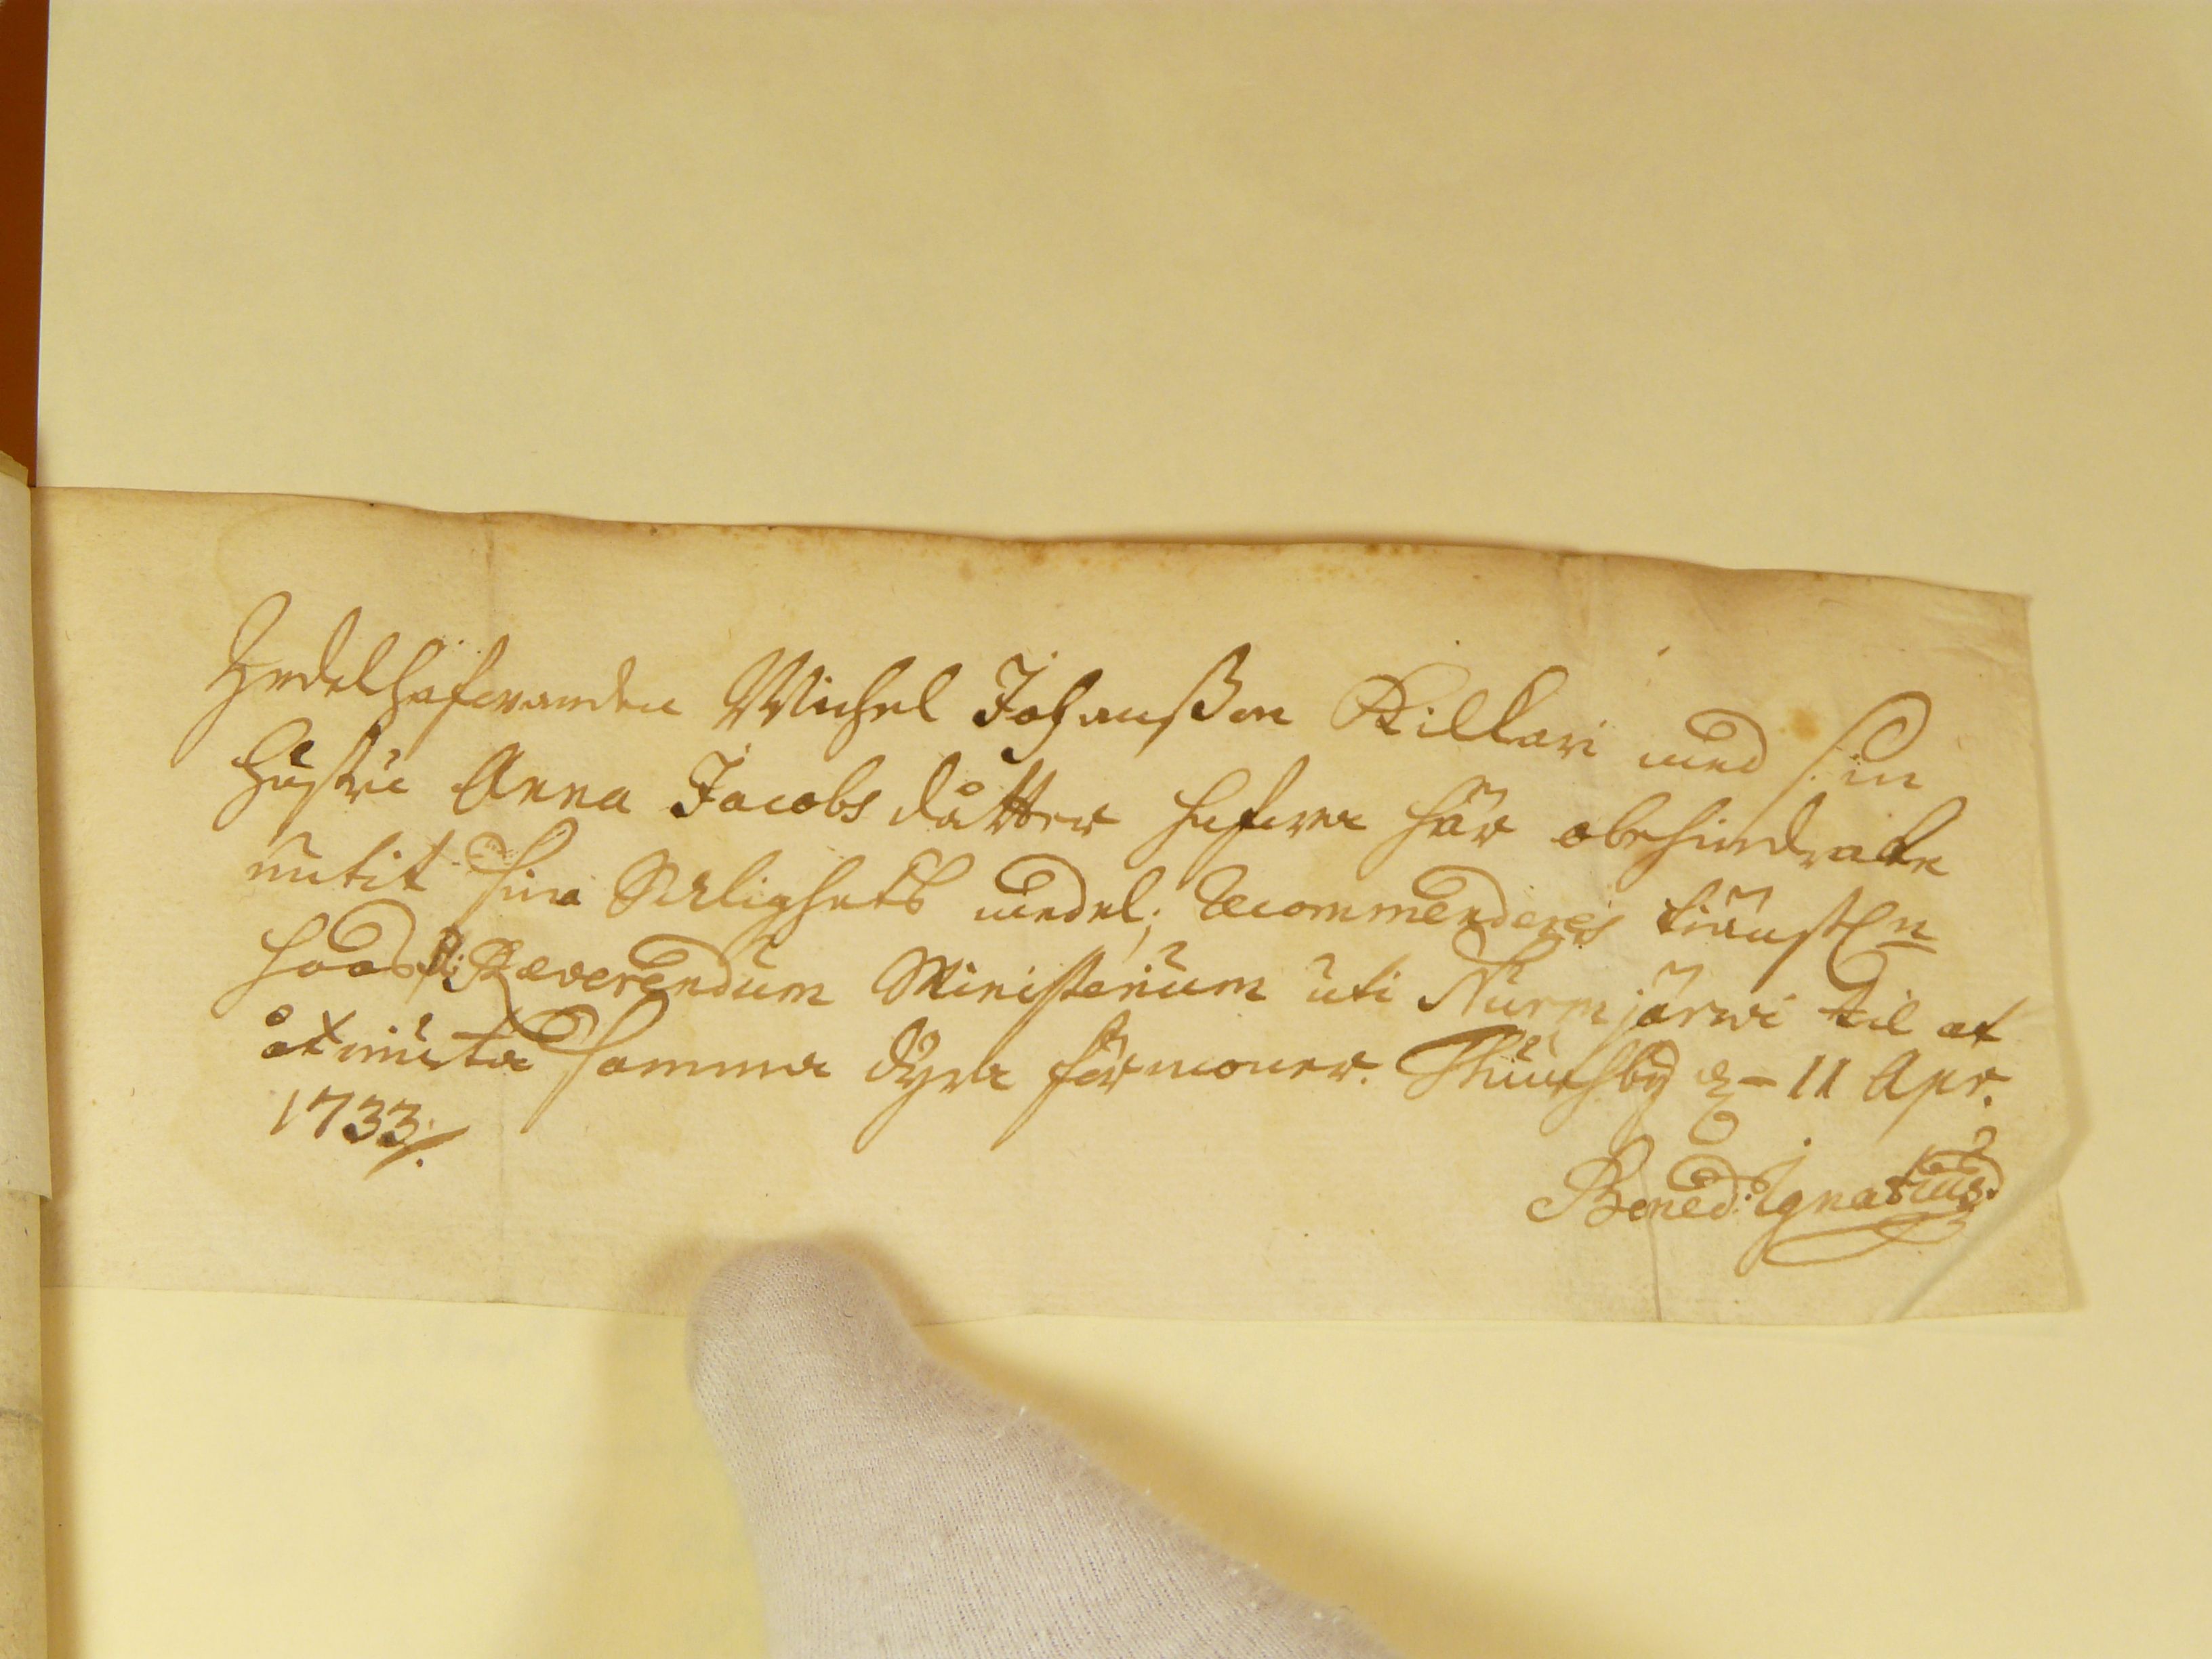 Zedelhafwanden Michel Johanßon Killari med sin
hustru Anna Jacobs dåtter hafwa här obehindrade
nutit sina Salighets medel; Recommenderes tiänstl:n
hoos Pl: Reverendum Ministerium uti Nurmjärwi til at
åtniuta samma dyra förmoner. Thuusby d: 11 Apr.
1733./.
Bened: Ignatius.